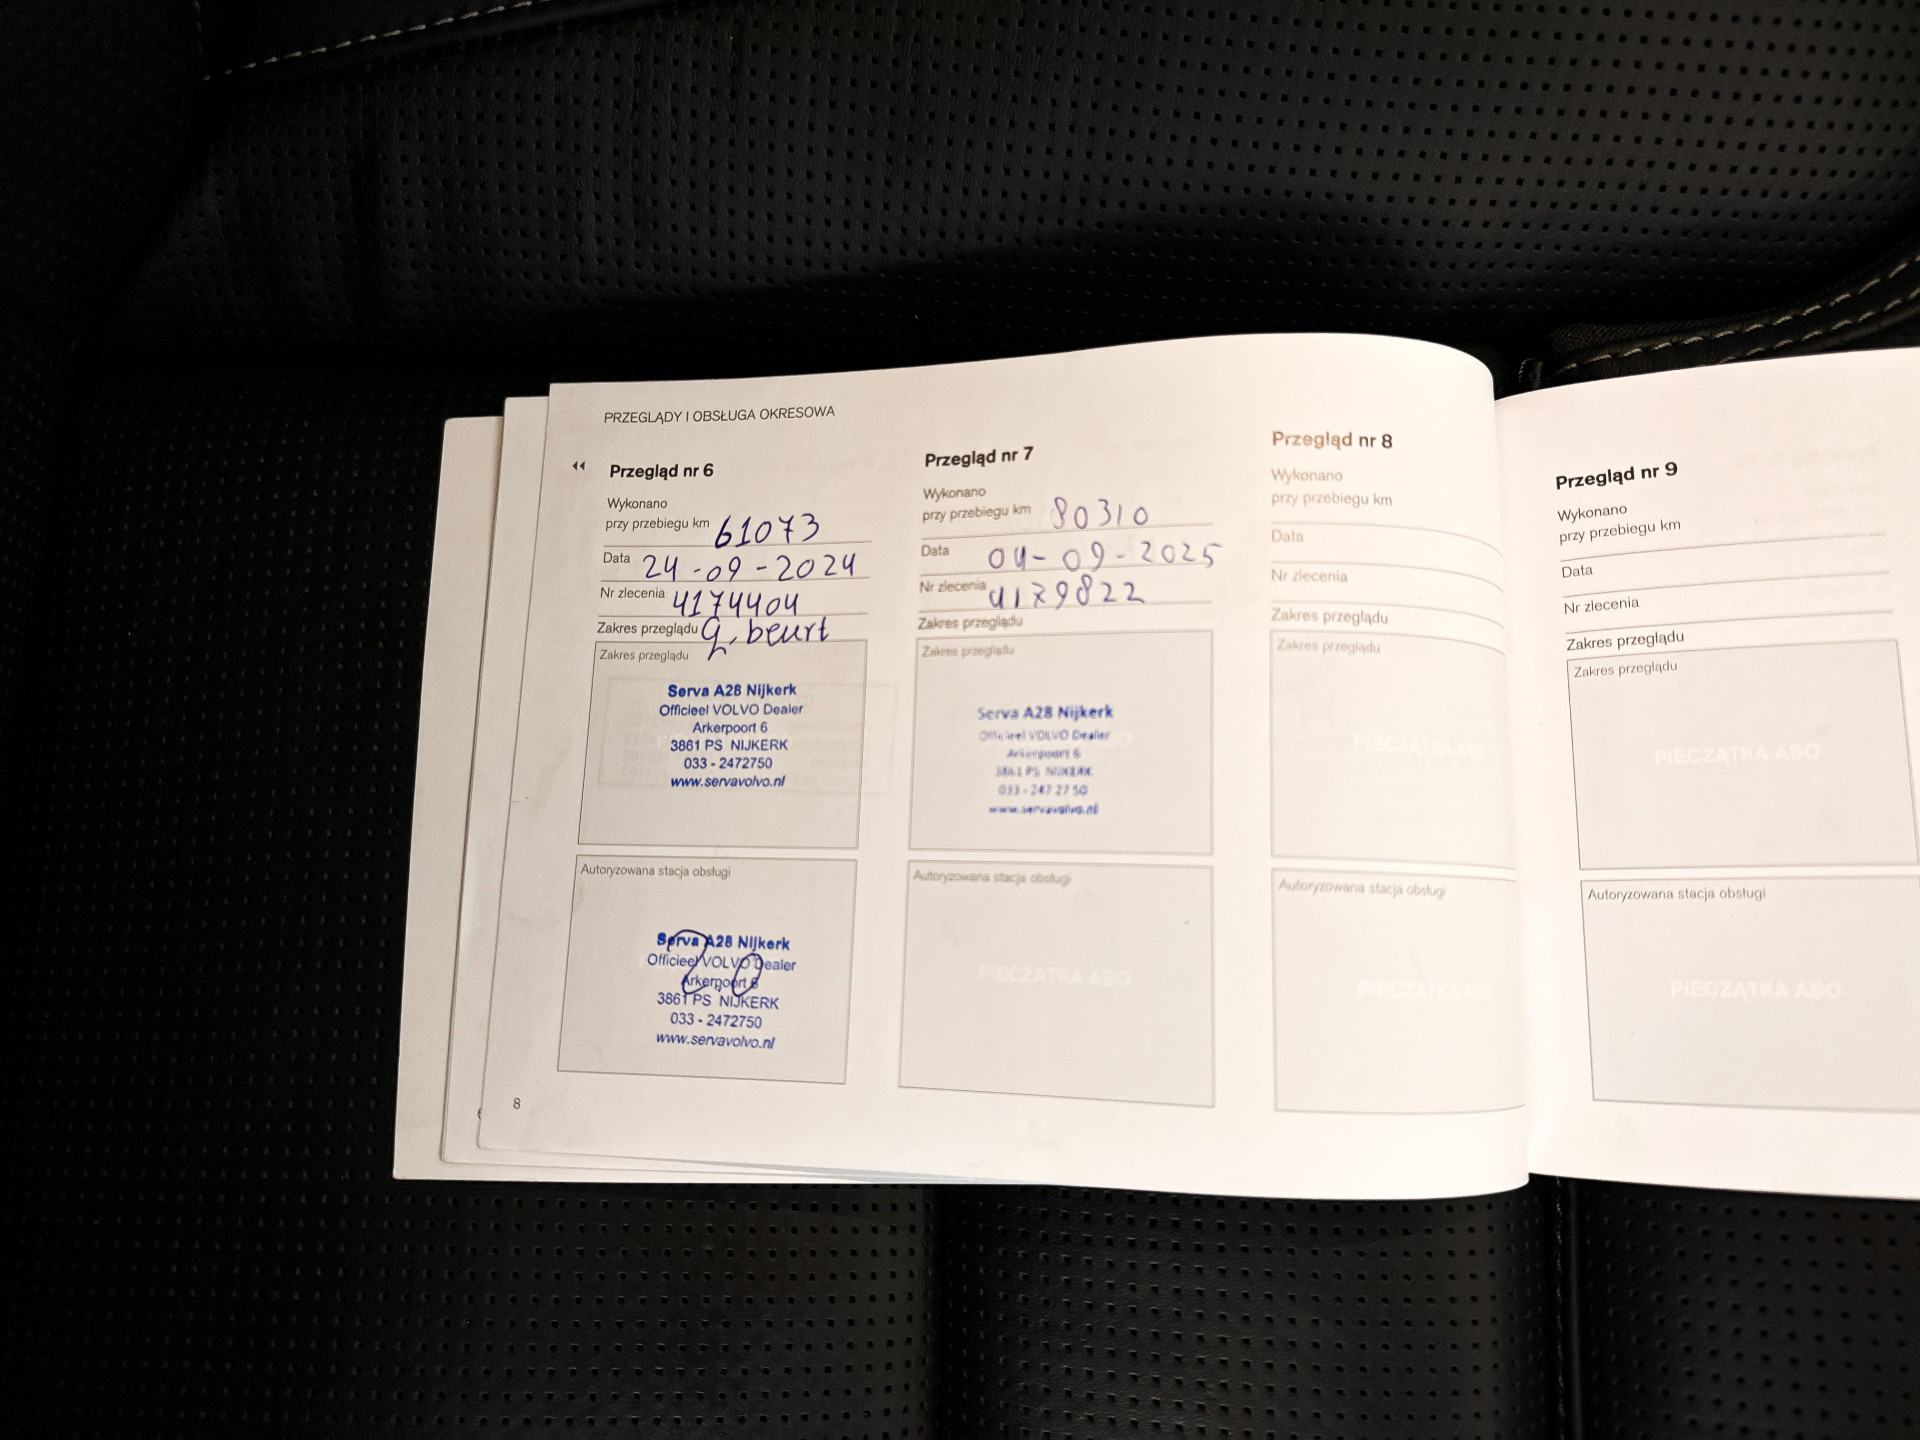 PRZEGLĄDY I OBSŁUGA OKRESOWA
Przegląd nr 6
Wykonano
przy przebiegu km 61073
Data 24-09-2024
Nr zlecenia 4174404
Zakres przeglądu g. beurt
Zakres przeglądu
Serva A28 Nijkerk
Officieel VOLVO Dealer
Arkerpoort 6
3861 PS NIJKERK
033 - 2472750
www.servavolvo.nl
Autoryzowana stacja obsługi
Serva A28 Nijkerk
Officieel VOLVO Dealer
Arkerpoort 6
3861 PS NIJKERK
033 - 2472750
www.servavolvo.nl
8
Przegląd nr 7
Wykonano
przy przebiegu km 80310
Data 04-09-2025
Nr zlecenia 4179822
Zakres przeglądu
Zakres przeglądu
Serva A28 Nijkerk
Officieel VOLVO Dealer
Arkerpoort 6
3861 PS NIJKERK
033 - 247 27 50
www.servavolvo.nl
Autoryzowana stacja obsługi
PIECZĄTKA ASO
Przegląd nr 8
Wykonano
przy przebiegu km
Data
Nr zlecenia
Zakres przeglądu
Zakres przeglądu
PIECZĄTKA ASO
Autoryzowana stacja obsługi
PIECZĄTKA ASO
Przegląd nr 9
Wykonano
przy przebiegu km
Data
Nr zlecenia
Zakres przeglądu
Zakres przeglądu
PIECZĄTKA ASO
Autoryzowana stacja obsługi
PIECZĄTKA ASO